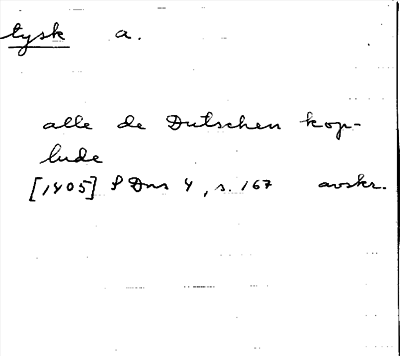 tysk a.
alle de Dutschen kop-
lude
[1405] SDns 4, s. 167 avskr.